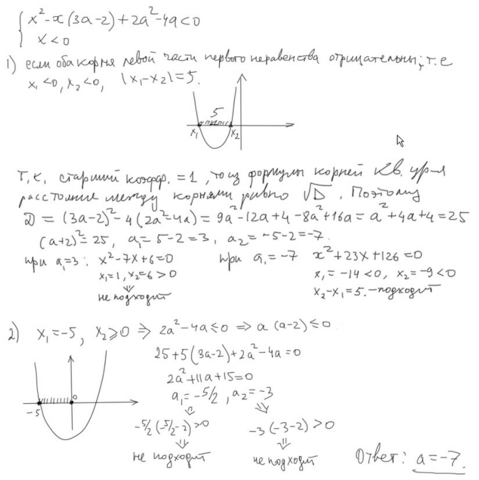 { x²-x(3a-2)+2a²-4a<0
x<0
1) если оба корня левой части первого неравенства отрицательны, т.е
x₁<0, x₂<0, |x₁-x₂|=5.
5
x₁ x₂
Т.к. старший коэфф.=1, то из формулы корней кв. ур-я
расстояние между корнями равно √D. Поэтому
D=(3a-2)²-4(2a²-4a)=9a²-12a+4-8a²+16a=a²+4a+4=25
(a+2)²=25, a₁=5-2=3, a₂=-5-2=-7.
при a₁=3: x²-7x+6=0 при a₁=-7 x²+23x+126=0
x₁=1, x₂=6>0 x₁=-14<0, x₂=-9<0
⇓ x₂-x₁=5. -подходит
не подходит
2) x₁=-5, x₂⩾0 ⇒ 2a²-4a⩽0 ⇒ a(a-2)⩽0.
25+5(3a-2)+2a²-4a=0
2a²+11a+15=0
-5 0
a₁=-5/2, a₂=-3
⇓ ⇓
-5/2(-5/2-2)>0 -3(-3-2)>0
⇓ ⇓
не подходит не подходит Ответ: a=-7.